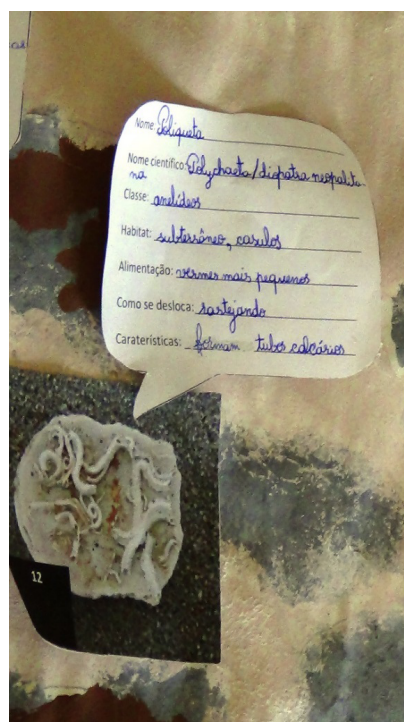 Nome: Poliqueta
Nome científico: Polychaeta/diopatra neopalita-
na
Classe: anelídeos
Habitat: subterrâneo, casulos
Alimentação: vermes mais pequenos
Como se desloca: rastejando
Caraterísticas: formam tubos calcários
12